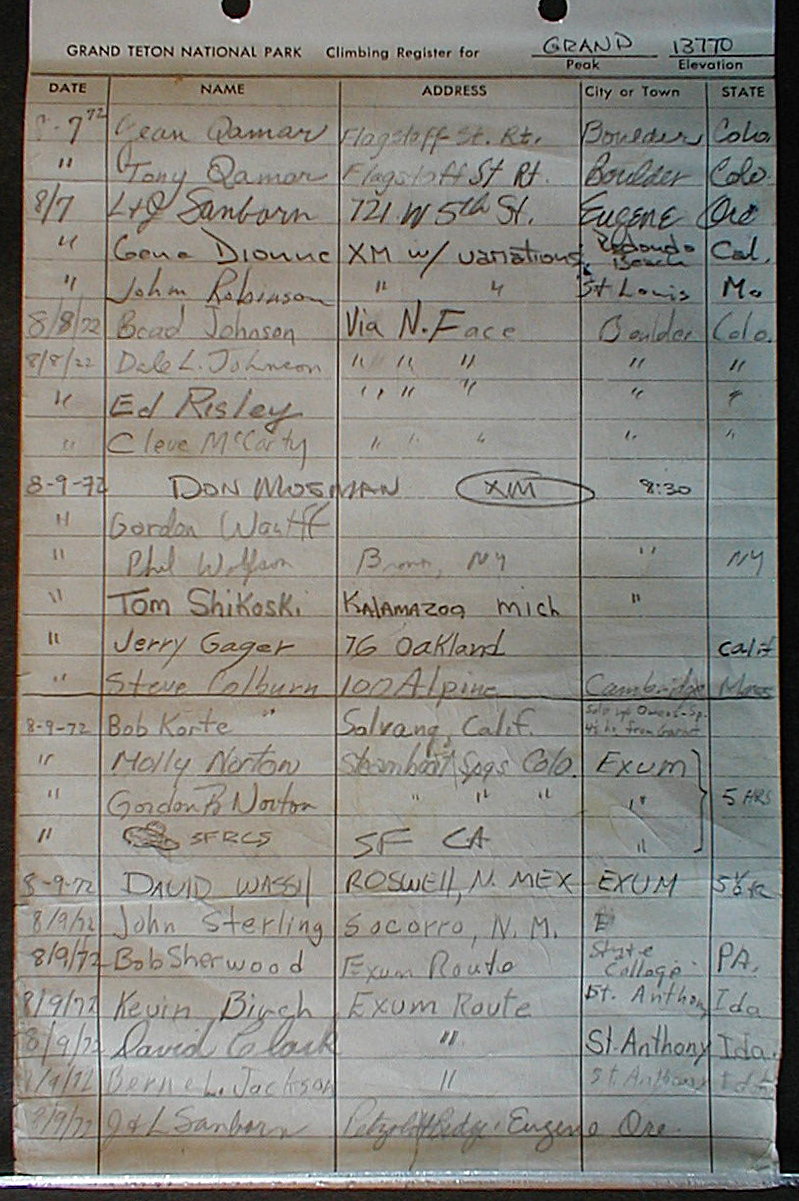 GRAND TETON NATIONAL PARK Climbing Register for GRAND 13770
Peak Elevation
DATE NAME ADDRESS City or Town STATE
8-7 72 Jean Qamar Flagstaff St. Rt. Boulder Colo.
" Tony Qamar Flagstaff St Rt. Boulder Colo.
8/7 L+J Sanborn 721 W 5th St. Eugene Ore
" Gene Dionne XM w/ variations Redondo Beach Cal.
" John Robinson " " St Louis Mo
8/8/72 Brad Johnson Via N. Face Boulder Colo.
8/8/72 Dale L. Johnson " " " " "
" Ed Risley " " " " "
" Cleve McCarty " " " " "
8-9-72 DON MOSMAN XM 8:30
" Gordon
" Phil Wolfson Bronx, NY " NY
" Tom Shikoski KALAMAZOO mich "
" Jerry Gager 76 Oakland Calif
" Steve Colburn 100 Alpine Cambridge Mass
8-9-72 Bob Korte " Solvang, Calif. Solo up Owen-Sp. 4½ hr. from
" Molly Norton Steamboat Spgs Colo. EXUM
" Gordon B Norton " " " " 5 HRS
" SFRCS SF CA "
8-9-72 DAVID WASSIL ROSWELL, N. MEX EXUM
8/9/72 John Sterling Socorro, N. M. E
8/9/72 Bob Sherwood Exum Route State College PA.
8/9/72 Kevin Birch Exum Route St. Anthony Ida
8/9/72 David Clark " St. Anthony Ida.
8/9/72 Berne L. Jackson " St Anthony Ida
8/9/72 J & L Sanborn Petzoldt Ridge. Eugene Ore.